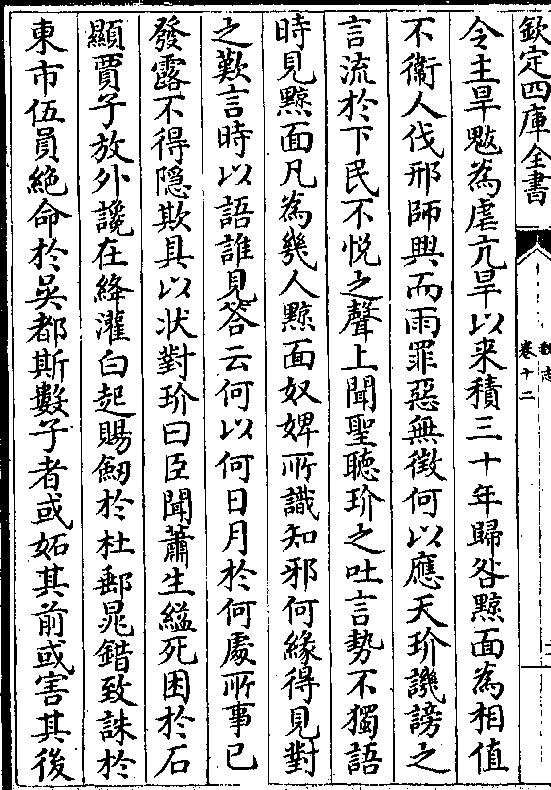 欽定四庫全書
魏志
卷十二
令主旱魃為虐亢旱以来積三十年歸咎黥面為相值
不衛人伐邢師興而雨罪惡無徵何以應天玠譏謗之
言流於下民不悦之聲上聞聖聽玠之吐言勢不獨語
時見黥面凡為幾人黥面奴婢所識知邪何緣得見對
之歎言時以語誰見答云何以何日月於何處所事已
發露不得隠欺具以狀對玠曰臣聞蕭生縊死困於石
顯賈子放外讒在絳灌白起賜劒於杜郵晁錯致誅於
東市伍員絶命於吳都斯數子者或妬其前或害其後